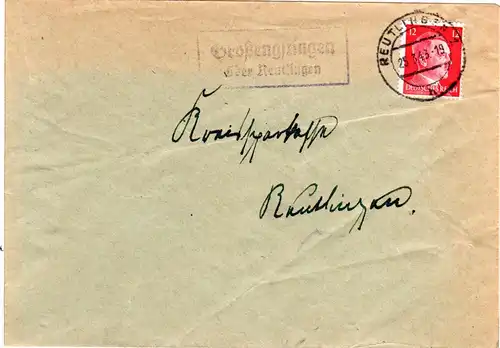 Großengstingen
über Reutlingen
REUTLINGEN
12 12
DEUTSCHES REICH
Kreissparkasse
Reutlingen.